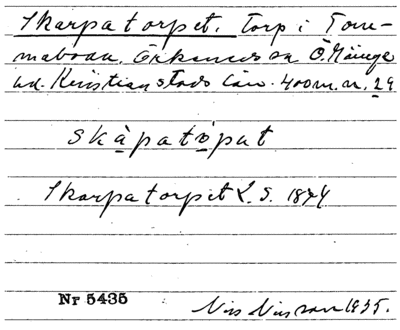 Skarpatorpet. Torp i Tom-
maboda. Örkeneds sn Ö. Göinge
hd. Kristianstads län. 400 m. n. 29
skàpatòpat
Skarpatorpet L. S. 1874
Nr 5435
Nils Nilsson 1935.